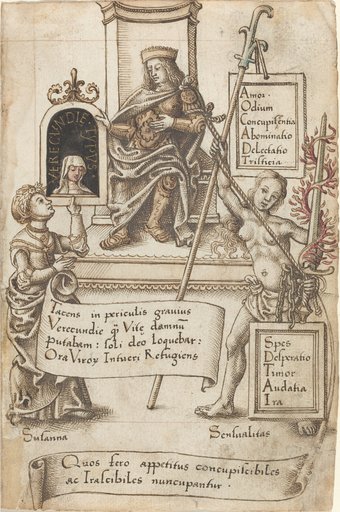 VERECUNDIE LVPVS
Amor ·
Odium
Concupiscentia
Abominatio
Delectatio
Tristicia
Iacens in periculis gravius
Verecundie q̃ Vitę damnũ
Putabam : soli deo loquebar :
Ora Viroȝ Intueri Refugiens
Spes
Desperatio
Timor
Audatia
Ira
Susanna
Sensualitas
Quos fero appetitus concupiscibiles
ac Irascibiles nuncupantur ·